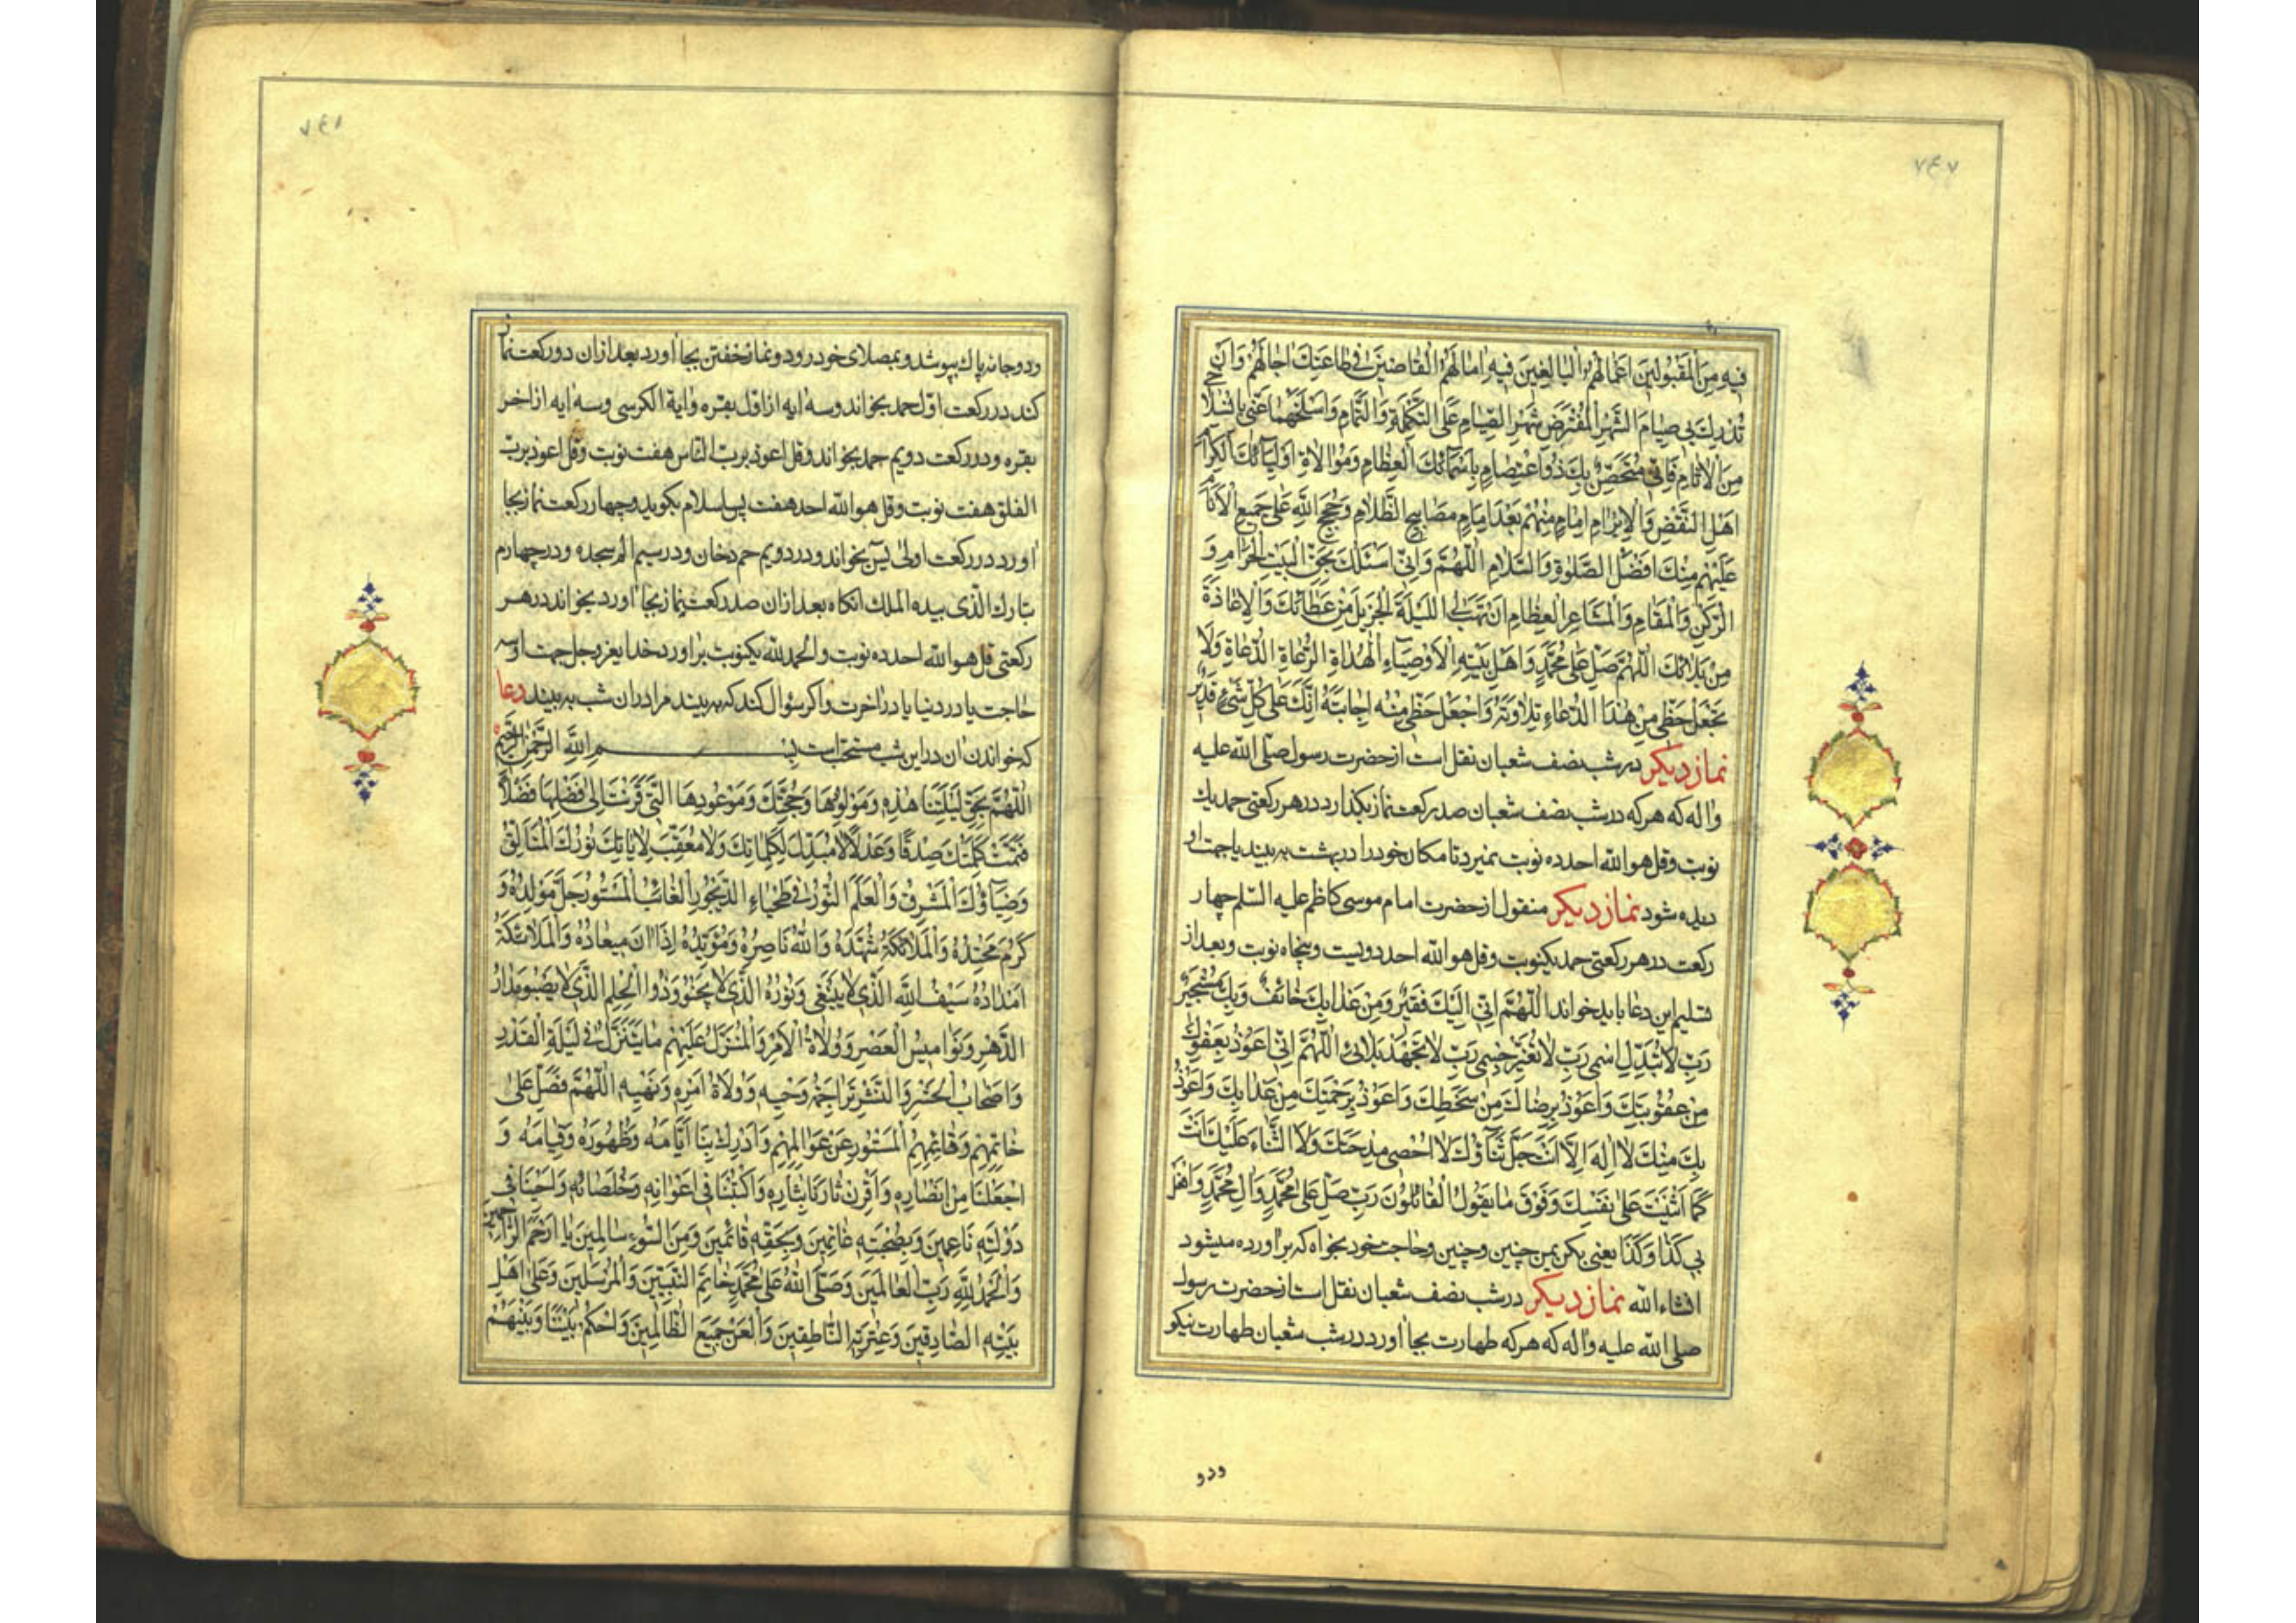 ٧٤٧
فيهِ مِنَ الْمَقْبُولينَ اَعْمالُهُمْ الْبالِغينَ فيهِ اٰمالَهُمْ الْقاضينَ فى طاعَتِكَ اٰجالَهُمْ وَاَنْ
تُدْرِكَ بى صِيامَ الشَّهْرِ الْمُفْتَرَضِ شَهْرِ الصِّيامِ عَلَى التَّكْمِلَةِ وَالتَّمامِ وَاسْلَخْهُما عَنّى بِانْسِلاخى
مِنَ الْاٰثامِ فَاِنّى مُتَحَصِّنٌ بِكَ ذُو اعْتِصامٍ بِاَسْمائِكَ الْعِظامِ وَمُوالاةِ اَوْلِيائِكَ الْكِرامِ
اَهْلِ النَّقْضِ وَالْاِبْرامِ اِمامٍ مِنْهُمْ بَعْدَ اِمامٍ مَصابيحِ الظَّلامِ وَحُجَجِ اللّهِ عَلى جَميعِ الْاَنامِ
عَلَيْهِمْ مِنْكَ اَفْضَلُ الصَّلوةِ وَالسَّلامِ اَللّهُمَّ وَاِنّى اَسْئَلُكَ بِحَقِّ الْبَيْتِ الْحَرامِ وَ
الرُّكْنِ وَالْمَقامِ وَالْمَشاعِرِ الْعِظامِ اَنْ تَهَبَ لِىَ اللَّيْلَةَ الْجَزيلَ مِنْ عَطائِكَ وَالْاِعاذَةَ
مِنْ بَلائِكَ اَللّهُمَّ صَلِّ عَلى مُحَمَّدٍ وَاَهْلِ بَيْتِهِ الْاَوْصِياءِ الْهُداةِ الرُّعاةِ الدُّعاةِ وَلا
تَجْعَلْ حَظّى مِنْ هٰذَا الدُّعاءِ تِلاوَتَهُ وَاجْعَلْ حَظّى مِنْهُ اِجابَتَهُ اِنَّكَ عَلى كُلِّ شَىْءٍ قَديرٌ
نماز ديكر در شب نصف شعبان نقل است از حضرت رسول صلّى اللّه عليه
واله كه هركه در شب نصف شعبان صد ركعت نماز بكذارد در هر ركعتى حمد يك
نوبت وقل هو اللّه احد ده نوبت نميرد تا مكان خود را در بهشت به بيند يا جهت او
ديده شود نماز ديكر منقول از حضرت امام موسى كاظم عليه السّلم چهار
ركعت در هر ركعتى حمد يكنوبت وقل هو اللّه احد دويست وپنجاه نوبت وبعد از
تسليم اين دعا بايد خواند اَللّهُمَّ اِنّى اِلَيْكَ فَقيرٌ وَمِنْ عَذابِكَ خائِفٌ وَبِكَ مُسْتَجيرٌ
رَبِّ لا تُبَدِّلِ اسْمى رَبِّ لا تُغَيِّرْ جِسْمى رَبِّ لا تَجْهَدْ بَلائى اَللّهُمَّ اِنّى اَعُوذُ بِعَفْوِكَ
مِنْ عُقُوبَتِكَ وَاَعُوذُ بِرِضاكَ مِنْ سَخَطِكَ وَاَعُوذُ بِرَحْمَتِكَ مِنْ عَذابِكَ وَاَعُوذُ
بِكَ مِنْكَ لا اِلٰهَ اِلّا اَنْتَ جَلَّ ثَناؤُكَ لا اُحْصى مِدْحَتَكَ وَلَا الثَّناءَ عَلَيْكَ اَنْتَ
كَما اَثْنَيْتَ عَلى نَفْسِكَ وَفَوْقَ ما يَقُولُ الْقائِلُونَ رَبِّ صَلِّ عَلى مُحَمَّدٍ وَاٰلِ مُحَمَّدٍ وَافْعَلْ
بى كَذا وَكَذا يعنى بكن بمن چنين وچنين وحاجت خود بخواه كه براورده ميشود
انشاء اللّه نماز ديكر در شب نصف شعبان نقل است از حضرت رسول
صلى اللّه عليه واله كه هركه طهارت بجا اورد در شب شعبان طهارت نيكو
ودو
٧٤٨
ودو جامه پاك بپوشد وبمصلاى خود رود ونماز خفتن بجا اورد بعد از ان دو ركعت نماز
كند در ركعت اوّل حمد بخواند وسه ايه از اوّل بقره واية الكرسى وسه ايه از اخر
بقره ودر ركعت دويم حمد بخواند وقل اعوذ بربّ النّاس هفت نوبت وقل اعوذ بربّ
الفلق هفت نوبت وقل هو اللّه احد هفت پس سلام بكويد وچهار ركعت نماز بجا
اورد در ركعت اولى يس بخواند ودر دويم حم دخان ودر سيم الم سجده ودر چهارم
تبارك الّذى بيده الملك انكاه بعد از ان صد ركعت نماز بجا اورد بخواند در هر
ركعتى قل هو اللّه احد ده نوبت والحمد للّه يكنوبت براورد خداى عز وجل جهت او سه
حاجت يا در دنيا يا در اخرت واكر سؤال كند كه به بيند مرا در ان شب به بيند دعا
كه خواندن ان در اين شب مستحبّ است بِسْمِ اللّهِ الرَّحْمٰنِ الرَّحيمِ
اَللّهُمَّ بِحَقِّ لَيْلَتِنا هٰذِهِ وَمَوْلُودِها وَحُجَّتِكَ وَمَوْعُودِها الَّتى قَرَنْتَ اِلى فَضْلِها فَضْلاً
فَتَمَّتْ كَلِمَتُكَ صِدْقًا وَعَدْلاً لا مُبَدِّلَ لِكَلِماتِكَ وَلا مُعَقِّبَ لِاٰياتِكَ نُورُكَ الْمُتَاَلِّقُ
وَضِياؤُكَ الْمُشْرِقُ وَالْعَلَمُ النُّورُ فى طَخْياءِ الدَّيْجُورِ الْغائِبُ الْمَسْتُورُ جَلَّ مَوْلِدُهُ وَ
كَرُمَ مَحْتِدُهُ وَالْمَلائِكَةُ شُهَّدُهُ وَاللّهُ ناصِرُهُ وَمُؤَيِّدُهُ اِذا اٰنَ ميعادُهُ وَالْمَلائِكَةُ
اَمْدادُهُ سَيْفُ اللّهِ الَّذى لا يَنْبَغى وَنُورُهُ الَّذى لا يَخْبُو وَذُو الْحِلْمِ الَّذى لا يَصْبُو مَدارُ
الدَّهْرِ وَنَواميسُ الْعَصْرِ وَوُلاةُ الْاَمْرِ وَالْمُنَزَّلُ عَلَيْهِمْ ما يَتَنَزَّلُ فى لَيْلَةِ الْقَدْرِ
وَاَصْحابُ الْحَشْرِ وَالنَّشْرِ تَراجِمَةُ وَحْيِهِ وَوُلاةُ اَمْرِهِ وَنَهْيِهِ اَللّهُمَّ فَصَلِّ عَلى
خاتِمِهِمْ وَقائِمِهِمُ الْمَسْتُورِ عَنْ عَوالِمِهِمْ وَاَدْرِكْ بِنا اَيّامَهُ وَظُهُورَهُ وَقِيامَهُ وَ
اجْعَلْنا مِنْ اَنْصارِهِ وَاقْرِنْ ثارَنا بِثارِهِ وَاكْتُبْنا فى اَعْوانِهِ وَخُلَصائِهِ وَاَحْيِنا فى
دَوْلَتِهِ ناعِمينَ وَبِصُحْبَتِهِ غانِمينَ وَبِحَقِّهِ قائِمينَ وَمِنَ السُّوءِ سالِمينَ يا اَرْحَمَ الرّاحِمينَ
وَالْحَمْدُ لِلّهِ رَبِّ الْعالَمينَ وَصَلَّى اللّهُ عَلى مُحَمَّدٍ خاتَمِ النَّبِيّينَ وَالْمُرْسَلينَ وَعَلى اَهْلِ
بَيْتِهِ الصّادِقينَ وَعِتْرَتِهِ النّاطِقينَ وَالْعَنْ جَميعَ الظّالِمينَ وَاحْكُمْ بَيْنَنا وَبَيْنَهُمْ